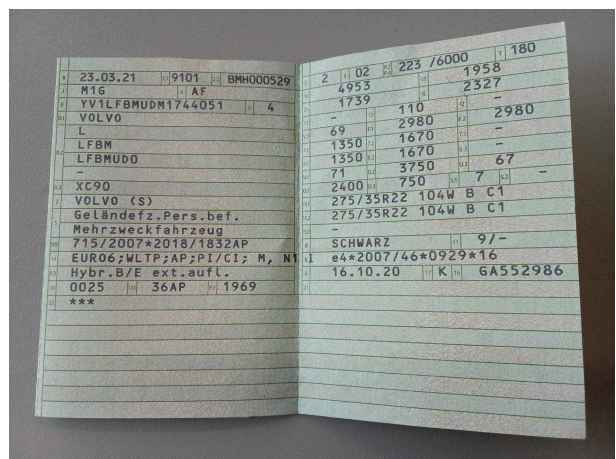 23.03.21 9101 BMH000529
M1G AF
YV1LFBMUDM1744051 4
VOLVO
L
LFBM
LFBMUD0
-
XC90
VOLVO (S)
Geländefz.Pers.bef.
Mehrzweckfahrzeug
715/2007*2018/1832AP
EURO6;WLTP;AP;PI/CI; M, N1 I
Hybr.B/E ext.aufl.
0025 36AP 1969
***
2 02 223 /6000 T 180
4953 1958
1739 2327
- 110 -
69 2980 2980
1350 1670 -
1350 1670 -
71 3750 67
2400 750 7 -
275/35R22 104W B C1
275/35R22 104W B C1
-
SCHWARZ 11 9/-
e4*2007/46*0929*16
16.10.20 17 K 16 GA552986